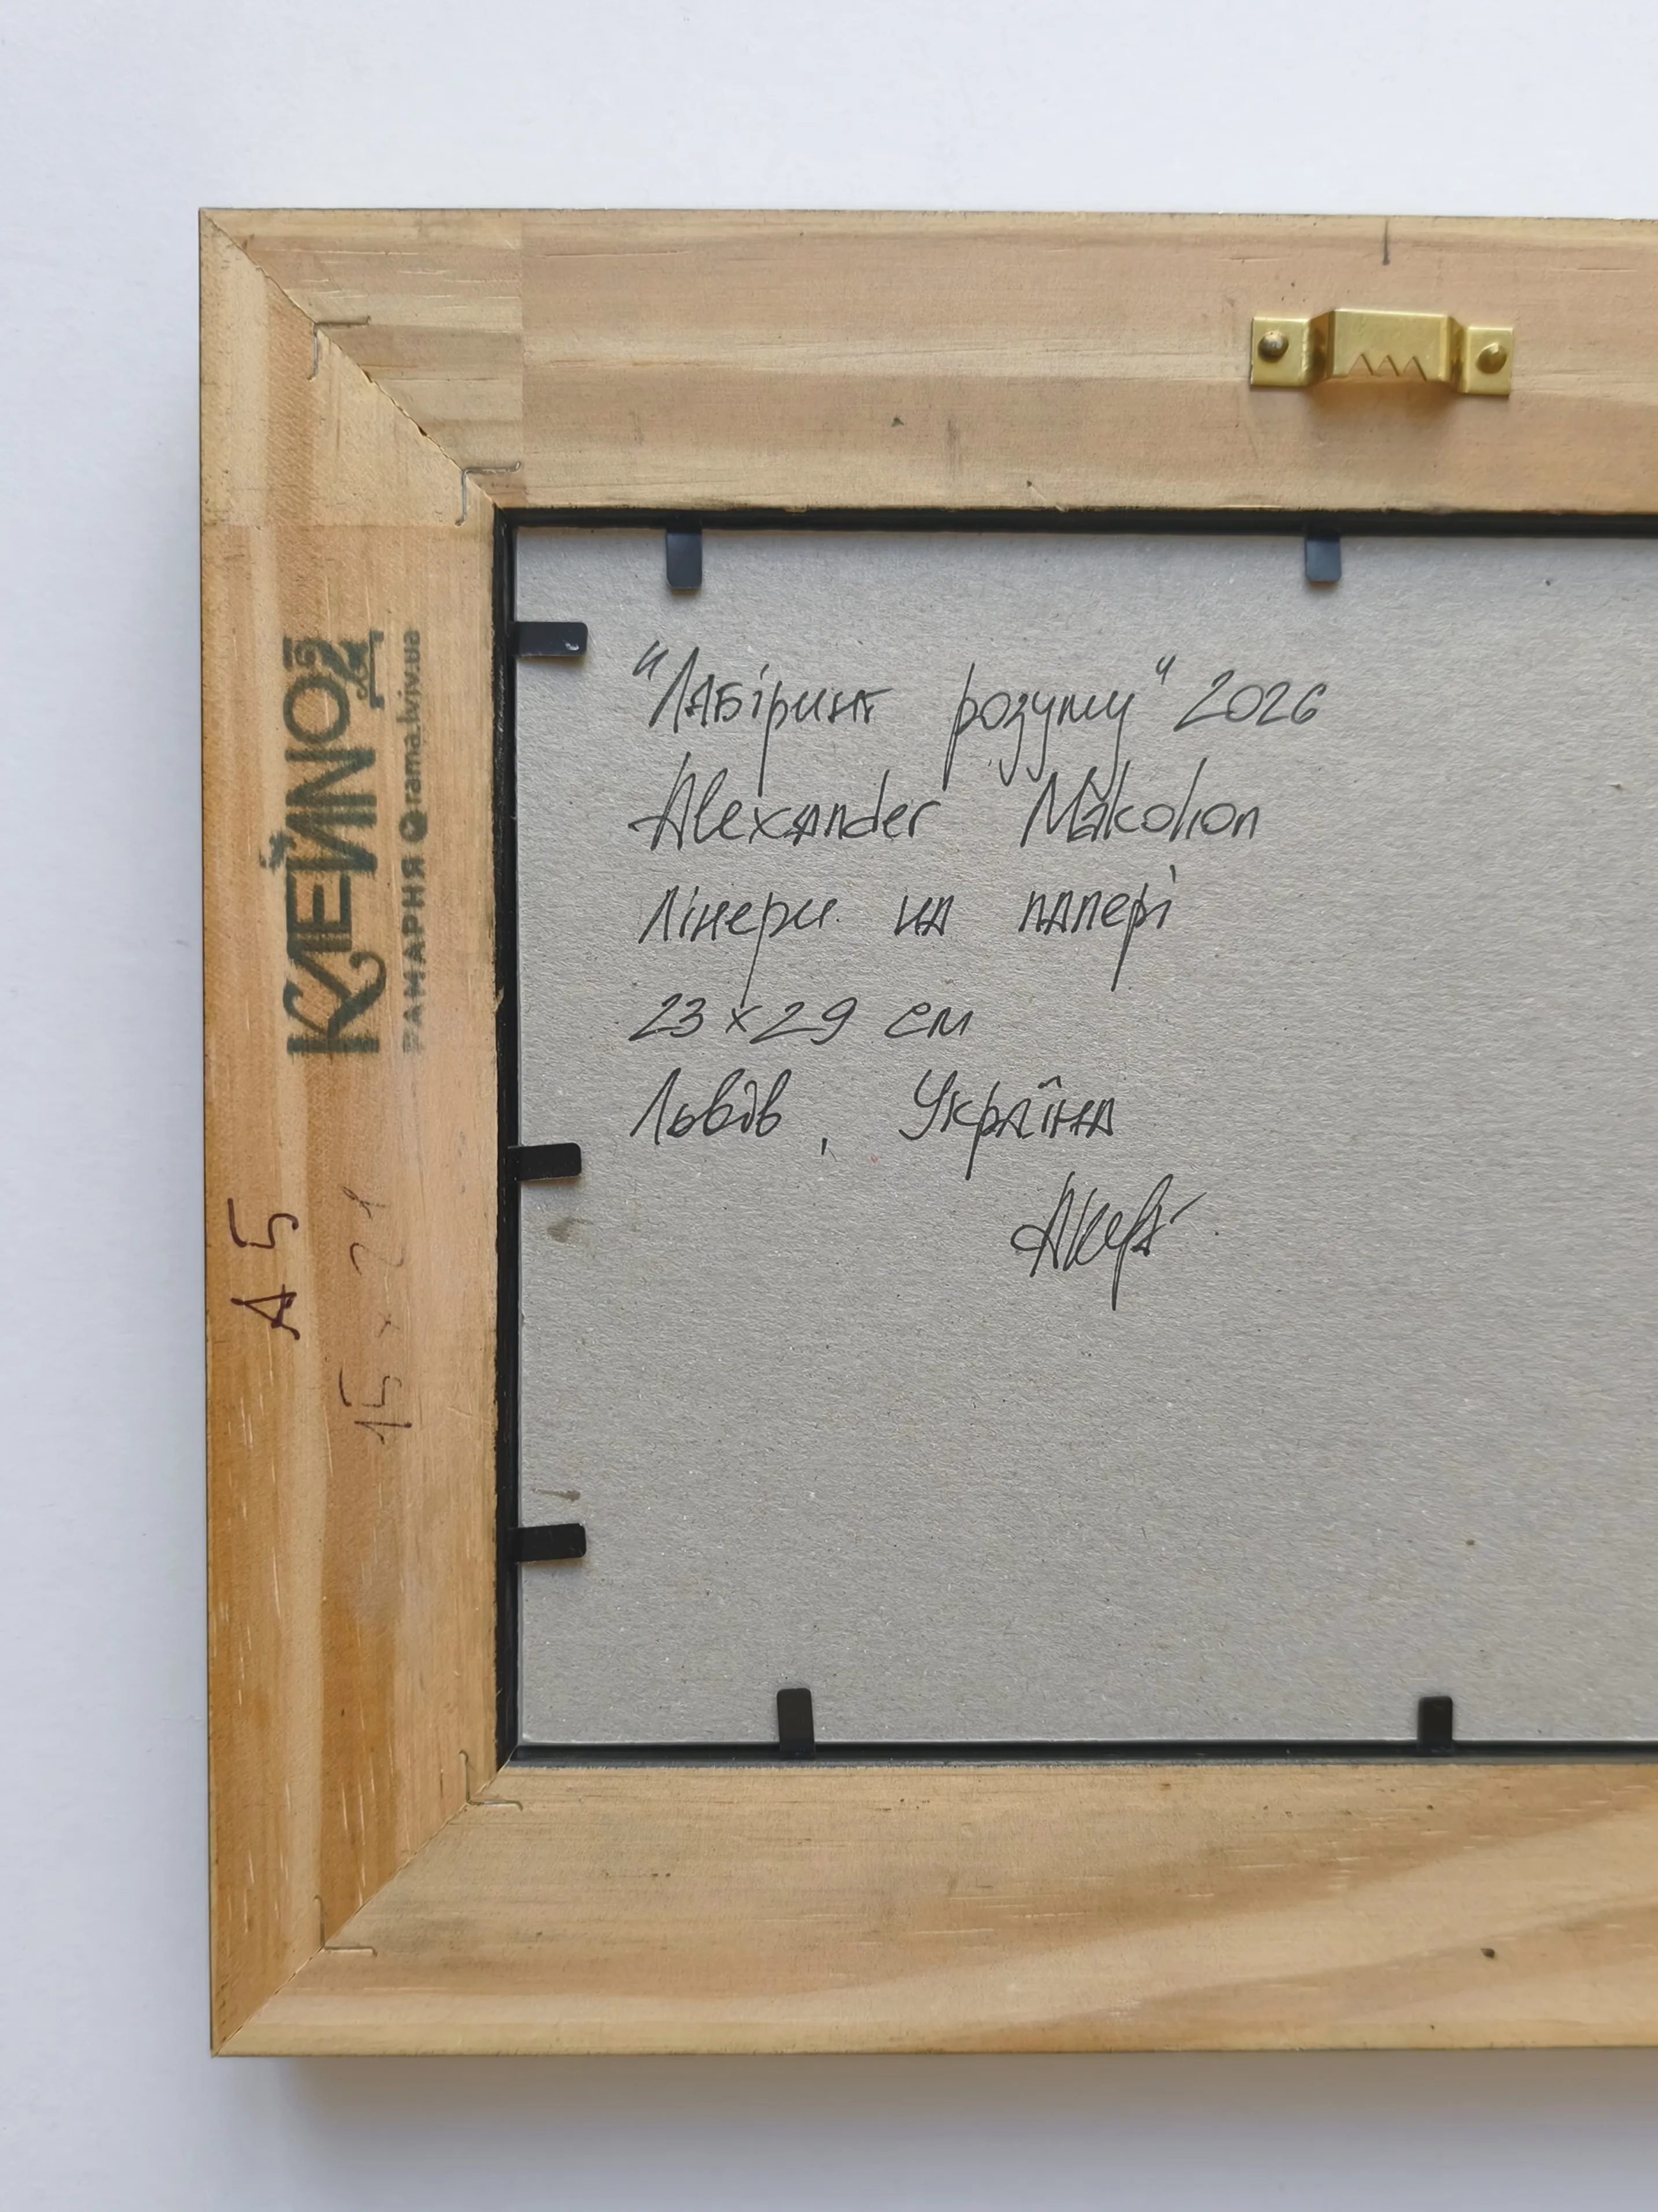 "Лабіринт розуму" 2026
Alexander Makohon
лінери на папері
23 x 29 см
Львів, Україна
КЛЕЙНОД
РАМАРНЯ rama.lviv.ua
A5
15 x 21